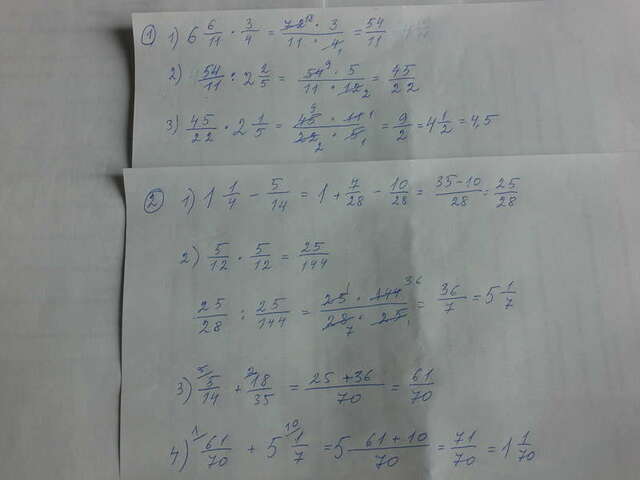 ① 1) 6 6/11 · 3/4 = 72 18 · 3 / 11 · 4 1 = 54/11
2) 54/11 : 2 2/5 = 54 9 · 5 / 11 · 12 2 = 45/22
3) 45/22 · 2 1/5 = 45 9 · 11 1 / 22 2 · 5 1 = 9/2 = 4 1/2 = 4,5
② 1) 1 1/4 - 5/14 = 1 + 7/28 - 10/28 = 35-10/28 = 25/28
2) 5/12 · 5/12 = 25/144
25/28 : 25/144 = 25 1 · 144 36 / 28 7 · 25 1 = 36/7 = 5 1/7
3) 5/ 5/14 + 2/ 18/35 = 25 + 36 / 70 = 61/70
4) 1/ 61/70 + 5 10/ 1/7 = 5 61 + 10 / 70 = 71/70 = 1 1/70